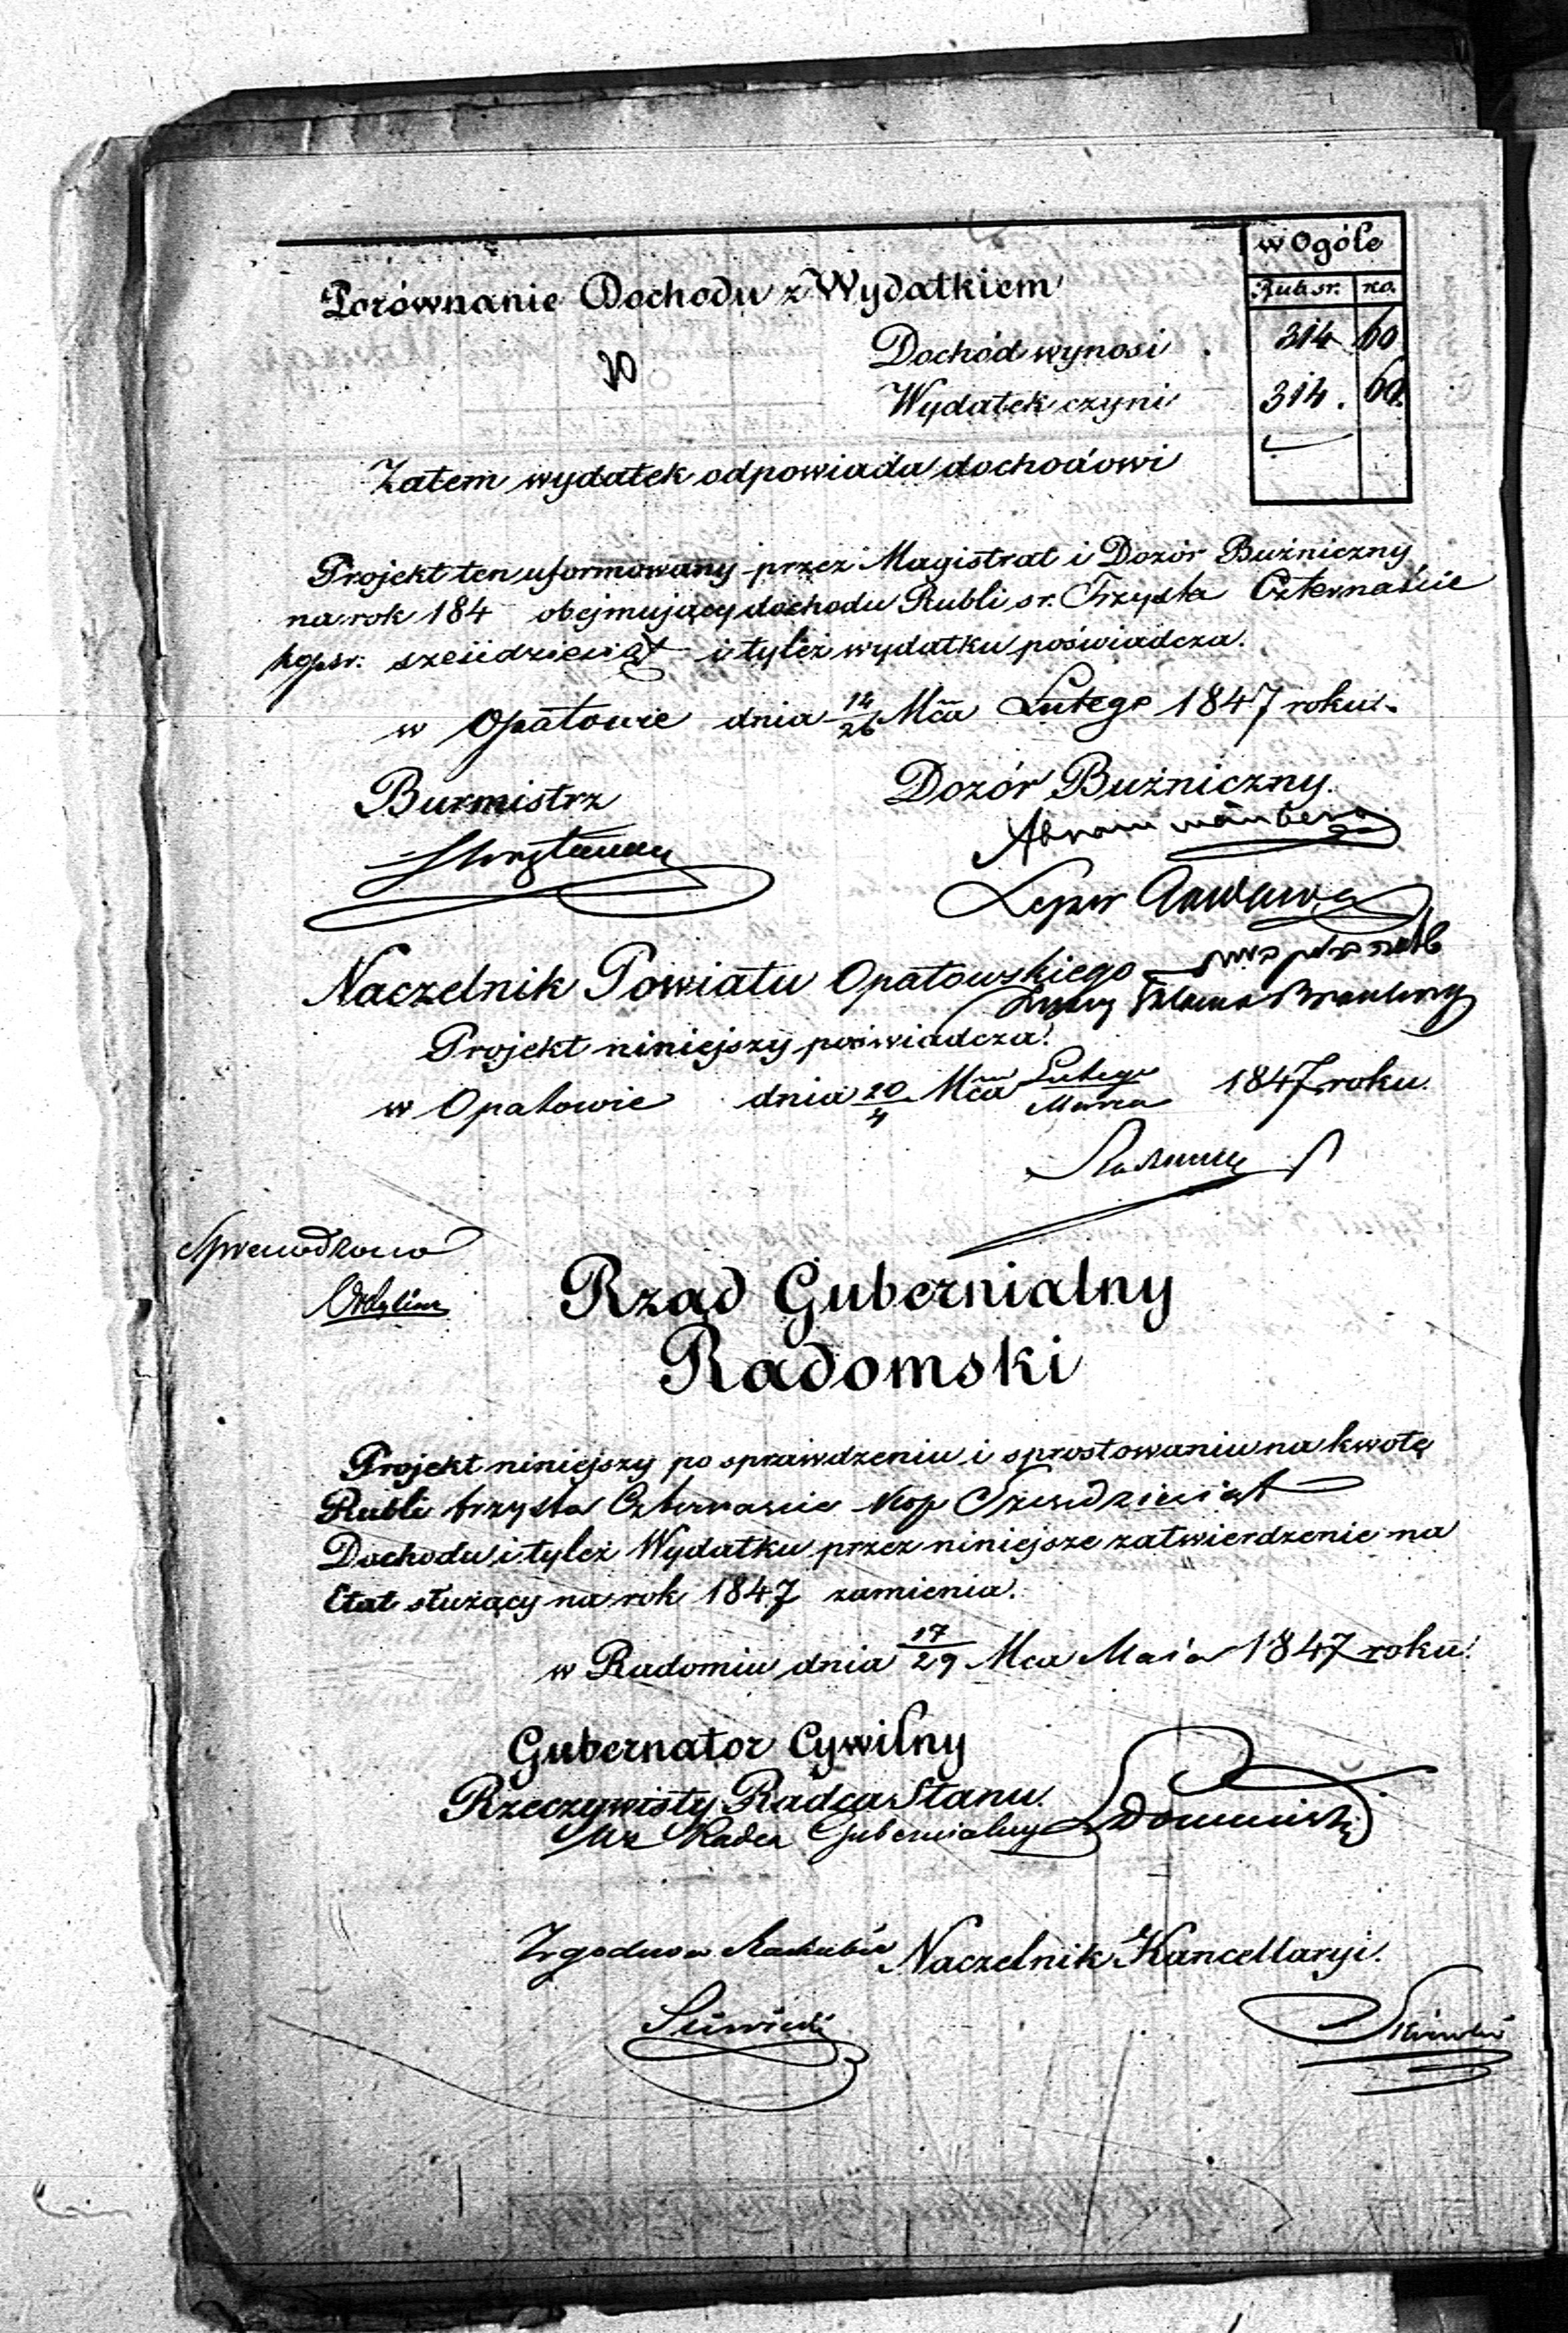 w Ogóle
Rub sr. ko.
Porównanie Dochodu z Wydatkiem
Dochód wynosi 314 60
Wydatek czyni 314. 60.
Zatem wydatek odpowiada dochodowi
Projekt ten uformowany przez Magistrat i Dozór Buźniczny
na rok 184 obejmujący dochodu Rubli sr. Trzysta Czternaście
kop sr. sześćdziesiąt i tyleż wydatku poświadcza.
w Opatowie dnia 14/26 Mca Lutego 1847 roku.
Burmistrz
Dozór Buźniczny.
Abram
Naczelnik Powiatu Opatowskiego
Projekt niniejszy poświadcza.
w Opatowie dnia 20/4 Mca Lutego/Marca 1847 roku.
Rząd Gubernialny
Radomski
Projekt niniejszy po sprawdzeniu i sprostowaniu na kwotę
Rubli trzysta Czternaście kop Sześćdziesiąt
Dochodu i tyleż Wydatku przez niniejsze zatwierdzenie na
Etat służący na rok 1847 zamienia.
w Radomiu dnia 17/29 Mca Maia 1847 roku.
Gubernator Cywilny
Rzeczywisty Radca Stanu.
Wz Radca Gubernialny
Naczelnik Kancellaryi.